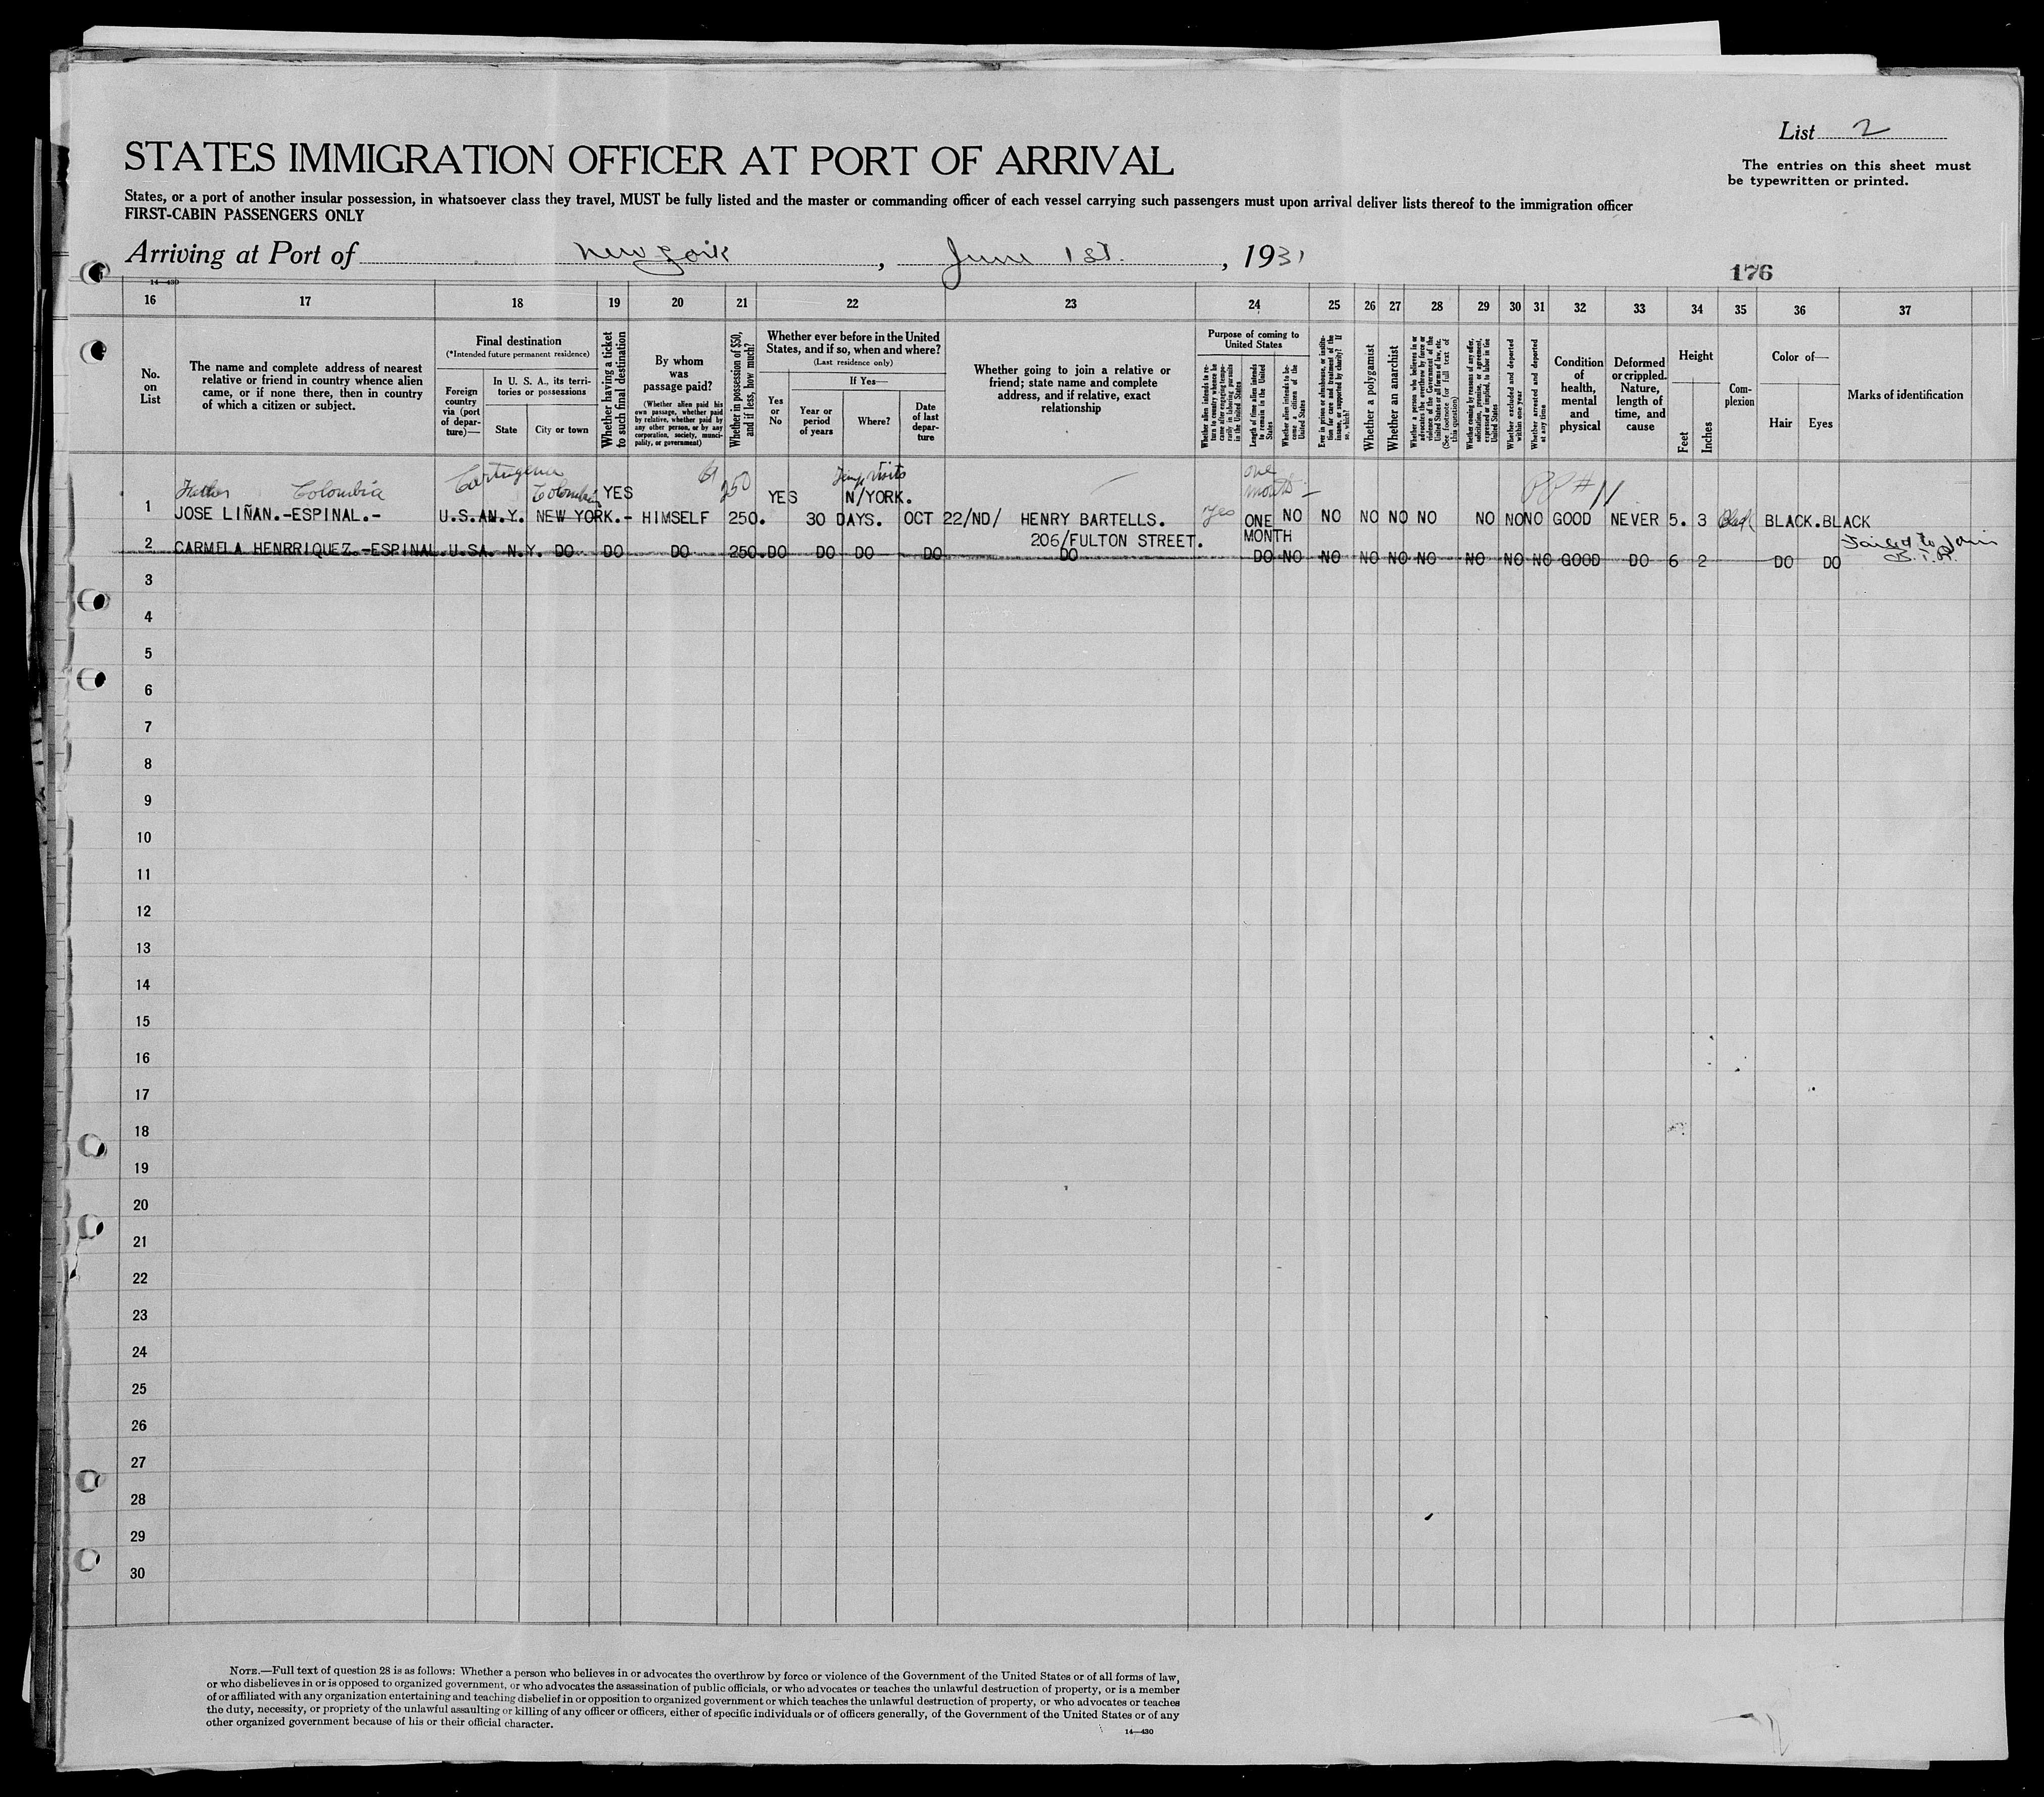 List 2
STATES IMMIGRATION OFFICER AT PORT OF ARRIVAL
The entries on this sheet must
be typewritten or printed.
States, or a port of another insular possession, in whatsoever class they travel, MUST be fully listed and the master or commanding officer of each vessel carrying such passengers must upon arrival deliver lists thereof to the immigration officer
FIRST-CABIN PASSENGERS ONLY
Arriving at Port of New York, June 1st, 1931
176
14—430
16 17 18 19 20 21 22 23 24 25 26 27 28 29 30 31 32 33 34 35 36 37
No. on List
The name and complete address of nearest
relative or friend in country whence alien
came, or if none there, then in country
of which a citizen or subject.
Final destination
(*Intended future permanent residence)
Foreign country via (port of departure)—
In U. S. A., its territories or possessions
State
City or town
Whether having a ticket to such final destination
By whom was passage paid?
(Whether alien paid his own passage, whether paid by relative, whether paid by any other person, or by any corporation, society, municipality, or government)
Whether in possession of $50, and if less, how much?
Whether ever before in the United
States, and if so, when and where?
(Last residence only)
Yes or No
If Yes—
Year or period of years
Where?
Date of last departure
Whether going to join a relative or
friend; state name and complete
address, and if relative, exact
relationship
Purpose of coming to United States
Whether alien intends to return to country whence he came after engaging temporarily in laboring pursuits in the United States
Length of time alien intends to remain in the United States
Whether alien intends to become a citizen of the United States
Ever in prison or almshouse, or institution for care and treatment of the insane, or supported by charity? If so, which?
Whether a polygamist
Whether an anarchist
Whether a person who believes in or advocates the overthrow by force or violence of the Government of the United States or all forms of law, etc. (See footnote for full text of this question)
Whether coming by reasons of any offer, solicitation, promise, or agreement, expressed or implied, to labor in the United States
Whether excluded and deported within one year
Whether arrested and deported at any time
Condition of health, mental and physical
Deformed or crippled. Nature, length of time, and cause
Height
Feet
Inches
Complexion
Color of—
Hair
Eyes
Marks of identification
Father Colombia Cartagena Colombia YES 250 YES Temp Visits N/YORK. one month — PP #
1 JOSE LIÑAN.-ESPINAL.- U.S.A N.Y. NEW YORK.- HIMSELF 250. 30 DAYS. OCT 22/ND/ HENRY BARTELLS. yes ONE NO NO NO NO NO NO NO NO GOOD NEVER 5. 3 BLACK. BLACK
206/FULTON STREET. MONTH
2 CARMELA HENRRIQUEZ.-ESPINAL. U.SA. N.Y. DO DO DO 250. DO DO DO DO DO DO NO NO NO NO NO NO NO NO GOOD DO 6 2 DO DO Failed to Join
3
4
5
6
7
8
9
10
11
12
13
14
15
16
17
18
19
20
21
22
23
24
25
26
27
28
29
30
NOTE.—Full text of question 28 is as follows: Whether a person who believes in or advocates the overthrow by force or violence of the Government of the United States or of all forms of law,
or who disbelieves in or is opposed to organized government, or who advocates the assassination of public officials, or who advocates or teaches the unlawful destruction of property, or is a member
of or affiliated with any organization entertaining and teaching disbelief in or opposition to organized government or which teaches the unlawful destruction of property, or who advocates or teaches
the duty, necessity, or propriety of the unlawful assaulting or killing of any officer or officers, either of specific individuals or of officers generally, of the Government of the United States or of any
other organized government because of his or their official character.
14—430